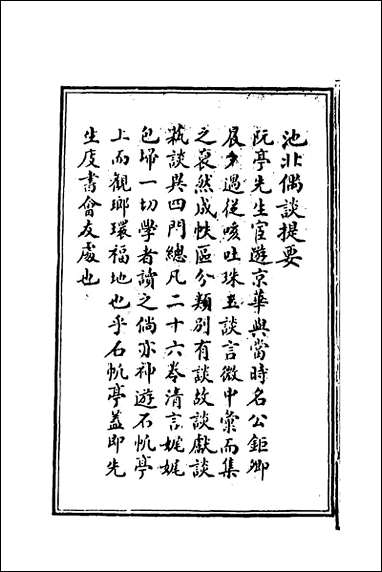 池北偶談提要
阮亭先生宦遊京華與當時名公鉅卿
屐過從咳吐珠玉談言微中彙而集
之裒然成帙區分類別有談故談獻談
藝談異四門總凡二十六卷清言娓娓
包掃一切學者讀之倘亦神遊石帆亭
上而觀瑯環福地也乎石帆亭蓋即先
生庋書會友處也